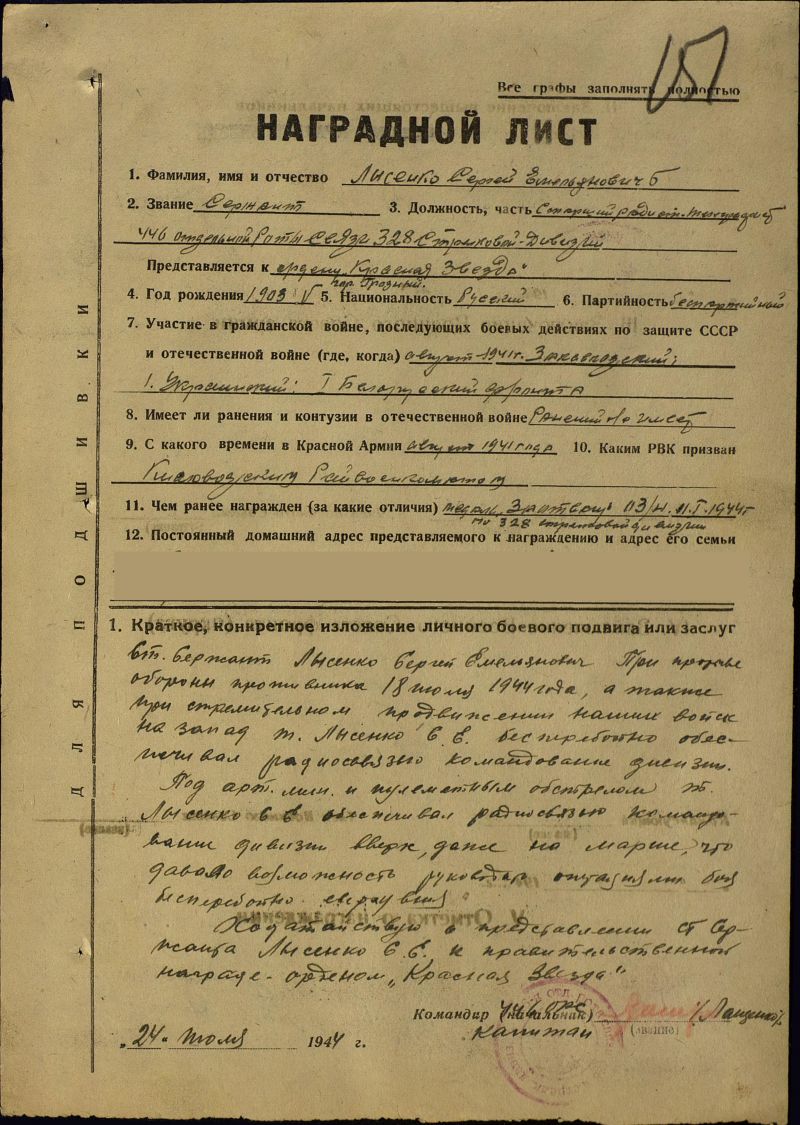 151
Все графы заполнять полностью
НАГРАДНОЙ ЛИСТ
1. Фамилия, имя и отчество Лысенко Сергей Емельянович
2. Звание Сержант 3. Должность, часть Старший радист
446 отдельной Роты Связи 328 Стрелковой Дивизии
Представляется к ордену „Красная Звезда"
гор. Грозный.
4. Год рождения 1903 5. Национальность Русский 6. Партийность беспартийный
7. Участие в гражданской войне, последующих боевых действиях по защите СССР
и отечественной войне (где, когда) август 1941г.
1. Украинский; I Белорусский фронта
8. Имеет ли ранения и контузии в отечественной войне Ранений не имеет
9. С какого времени в Красной Армии август 1941 года 10. Каким РВК призван
Кисловодским Райвоенкоматом
11. Чем ранее награжден (за какие отличия) медаль „За отвагу" 1944г
по 328 стрелковой дивизии
12. Постоянный домашний адрес представляемого к награждению и адрес его семьи
1. Краткое, конкретное изложение личного боевого подвига или заслуг
Ст. Сержант Лысенко Сергей Емельянович При прорыве
обороны противника 18 июля 1944 года, а также
при стремительном продвижении наших войск
на запад т. Лысенко С. Е. бесперебойно обес-
печивал радиосвязью командование дивизии.
Под арт. мин. и пулеметным обстрелом т.
Лысенко С Е обеспечивал радиосвязью командо-
вание дивизии вверх, даже на марше, что
давало возможность руководить
бесперебойно
Ходатайствую о представлении Ст Сер-
жанта Лысенко С. Е. к правительственной
награде - орденом „Красная Звезда"
Командир (начальник)
446 ОРС
капитан
(звание)
„24" июля 1944 г.
ДЛЯ ПОДШИВКИ